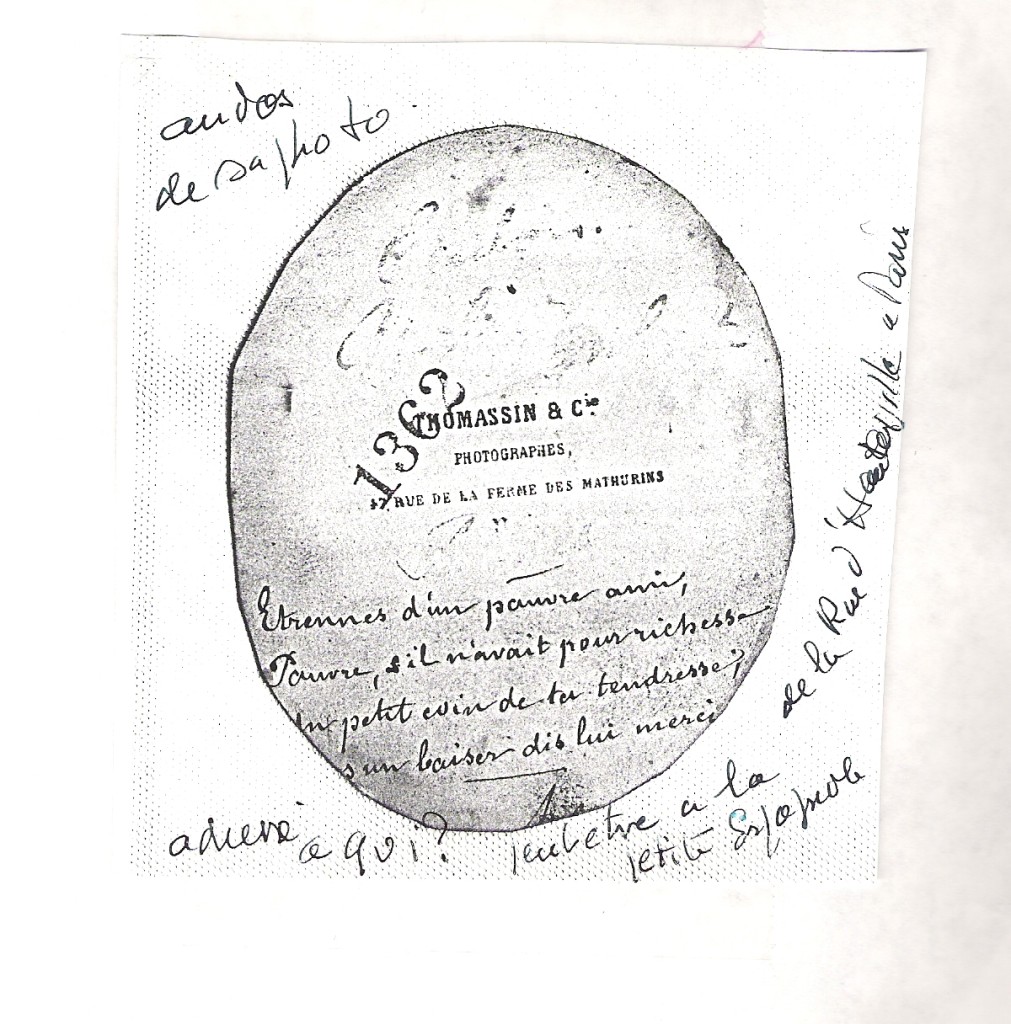 au dos
de sa photo
1362
THOMASSIN & Cie
PHOTOGRAPHES,
47 RUE DE LA FERME DES MATHURINS
Etrennes d'un pauvre ami,
Pauvre, s'il n'avait pour richesse
Un petit coin de ta tendresse;
s un baiser dis lui merci
adressé
a qui?
peut etre a la
petite Espagnole
de la Rue d'Hauteville a Paris